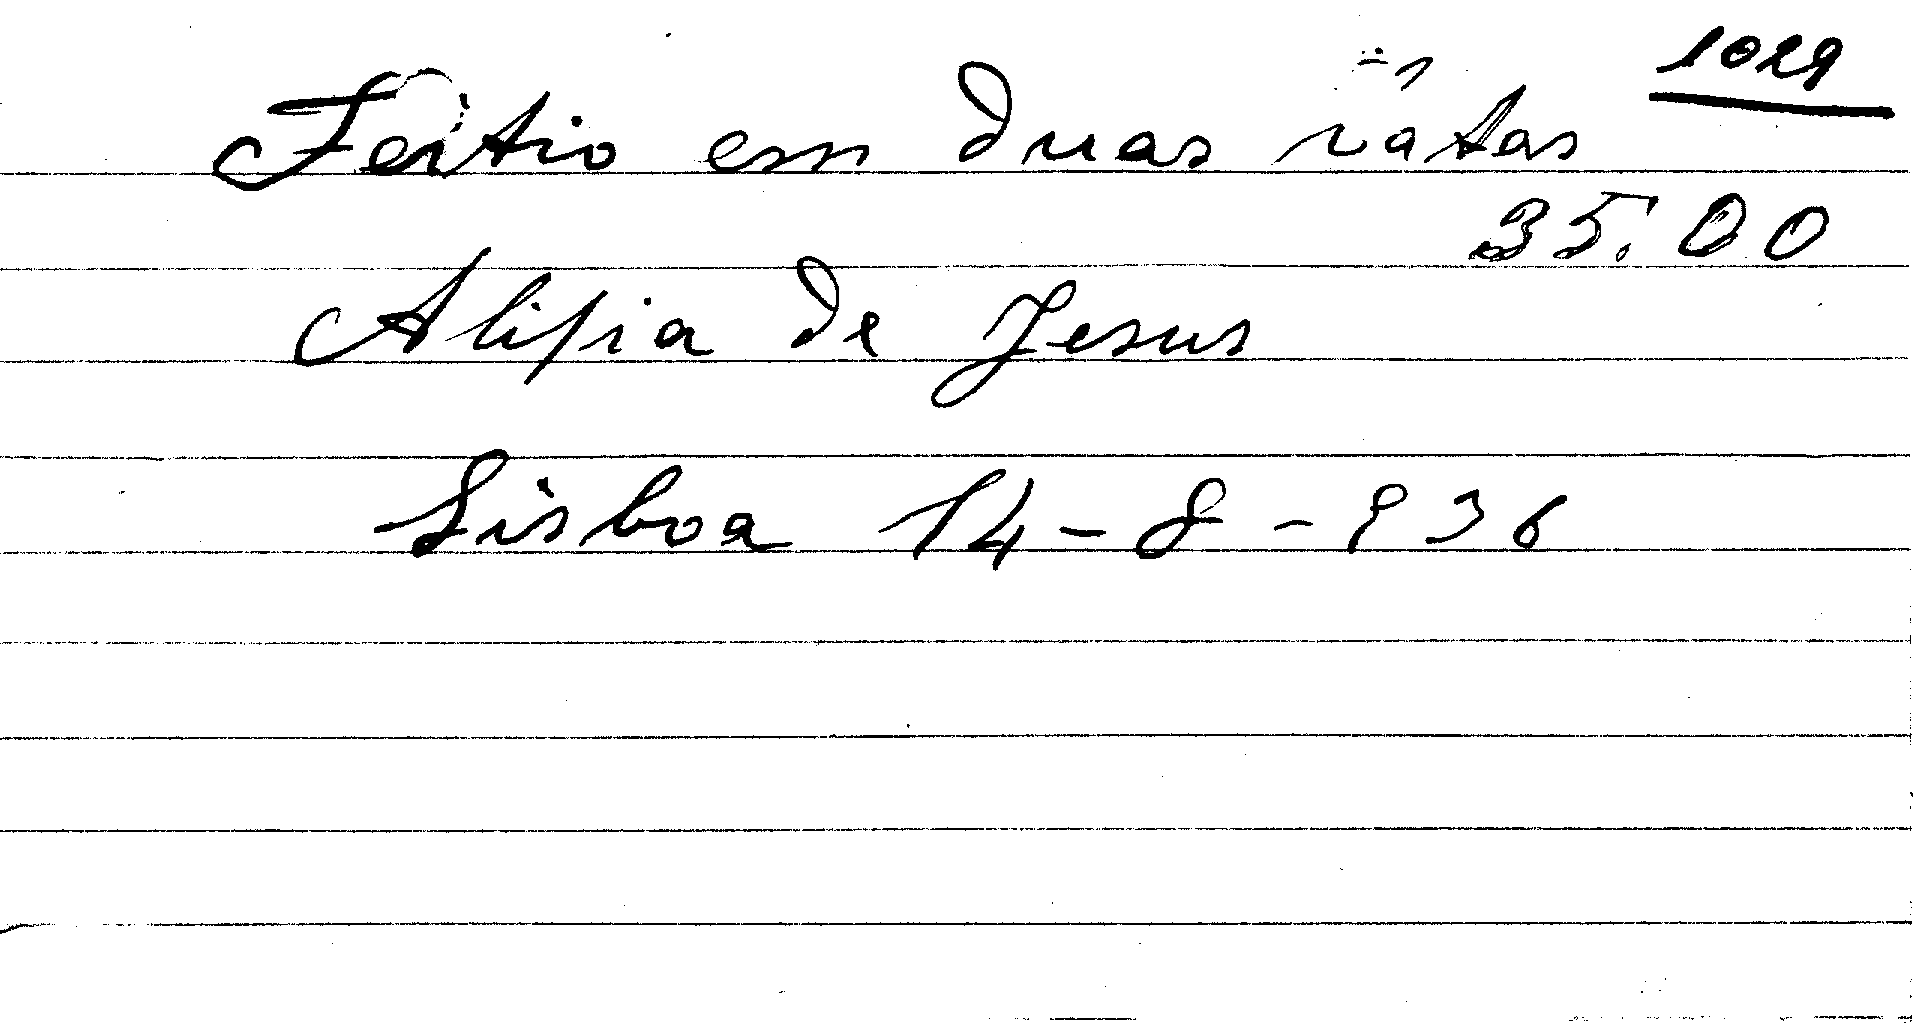 1029
Feitio em duas
35.00
Alipia de Jesus
Lisboa 14-8-936